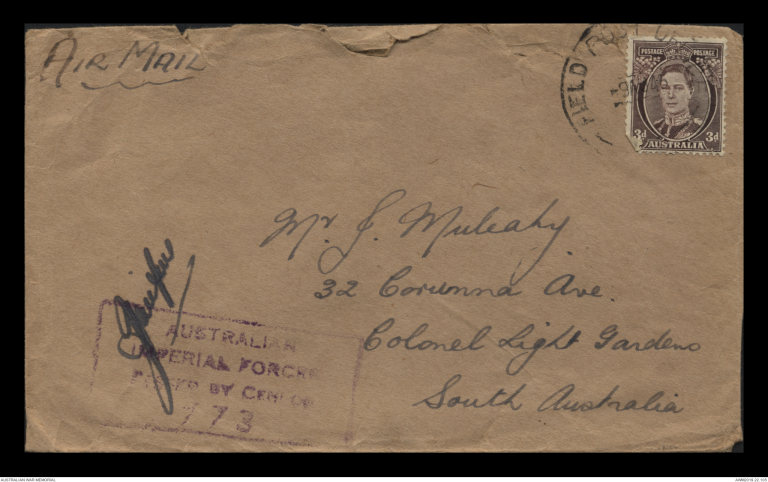 AIR MAIL
FIELD POST
POSTAGE POSTAGE
3d 3d
AUSTRALIA
Mr J. Mulcahy
32 Corunna Ave.
Colonel Light Gardens
South Australia
AUSTRALIAN
IMPERIAL FORCES
PASSED BY CENSOR
773
AUSTRALIAN WAR MEMORIAL